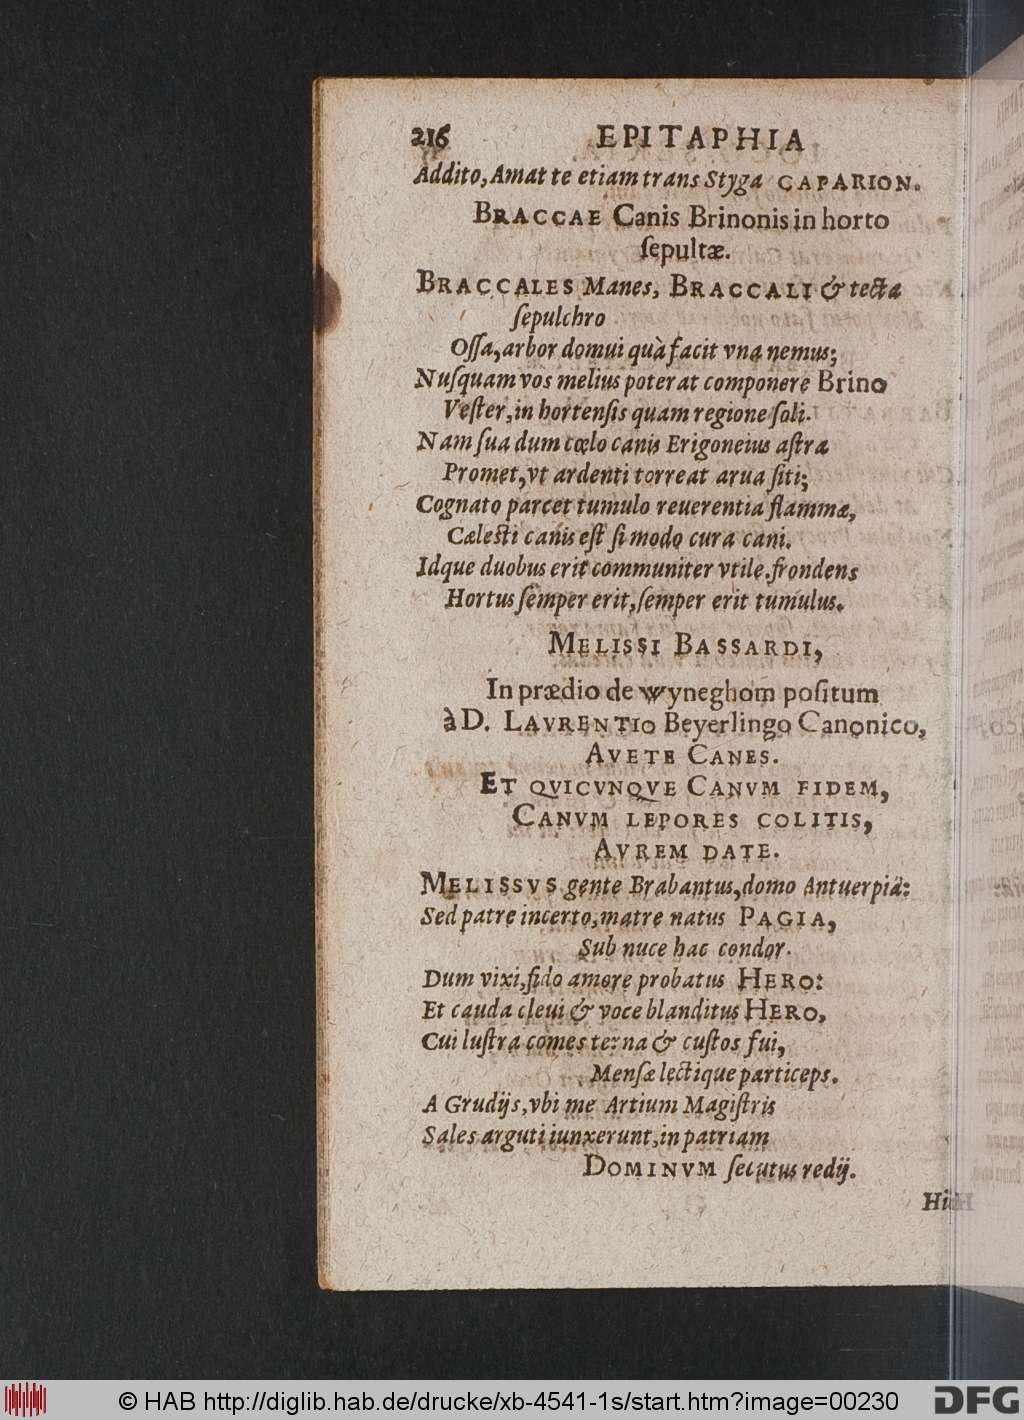 216 EPITAPHIA
Addito, Amat te etiam trans Styga CAPARION.
BRACCAE Canis Brinonis in horto
ſepultæ.
BRACCALES Manes, BRACCALI & tecta
ſepulchro
Oſſa, arbor domui quà facit vna nemus;
Nuſquam vos melius poterat componere Brino
Veſter, in hortenſis quam regione ſoli.
Nam ſua dum cœlo canis Erigoneius aſtra
Promet, vt ardenti torreat arua ſiti;
Cognato parcet tumulo reuerentia flammæ,
Cæleſti canis eſt ſi modo cura cani.
Idque duobus erit communiter vtile. frondens
Hortus ſemper erit, ſemper erit tumulus.
MELISSI BASSARDI,
In prædio de wyneghom poſitum
à D. LAVRENTIO Beyerlingo Canonico,
AVETE CANES.
ET QVICVNQVE CANVM FIDEM,
CANVM LEPORES COLITIS,
AVREM DATE.
MELISSVS gente Brabantus, domo Antuerpiâ:
Sed patre incerto, matre natus PAGIA,
Sub nuce hac condor.
Dum vixi, fido amore probatus HERO:
Et cauda cleui & voce blanditus HERO,
Cui luſtra comes terna & cuſtos fui,
Menſæ lectique particeps.
A Grudijs, vbi me Artium Magiſtris
Sales arguti iunxerunt, in patriam
DOMINVM ſecutus redij.
© HAB http://diglib.hab.de/drucke/xb-4541-1s/start.htm?image=00230 DFG